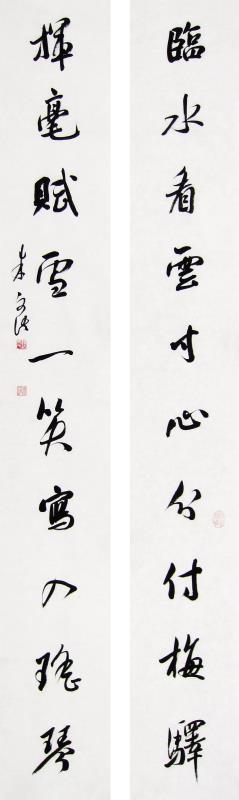 臨水看雲寸心分付梅驛
揮毫賦雪一笑寫入瑤琴